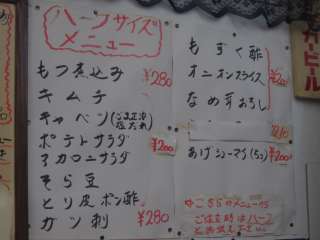 ハーフサイズ
メニュー
もつ煮込み ¥280
キムチ
キャベツ
ポテトサラダ ¥200
マカロニサラダ
そら豆
とり皮ポン酢
ガツ刺 ¥280
もずく酢
オニオンスライス ¥200
なめ茸おろし
あげシューマイ(5コ) ¥200
こちらのメニューから
ご注文時はハーフ
とお伝え下さい
ビール